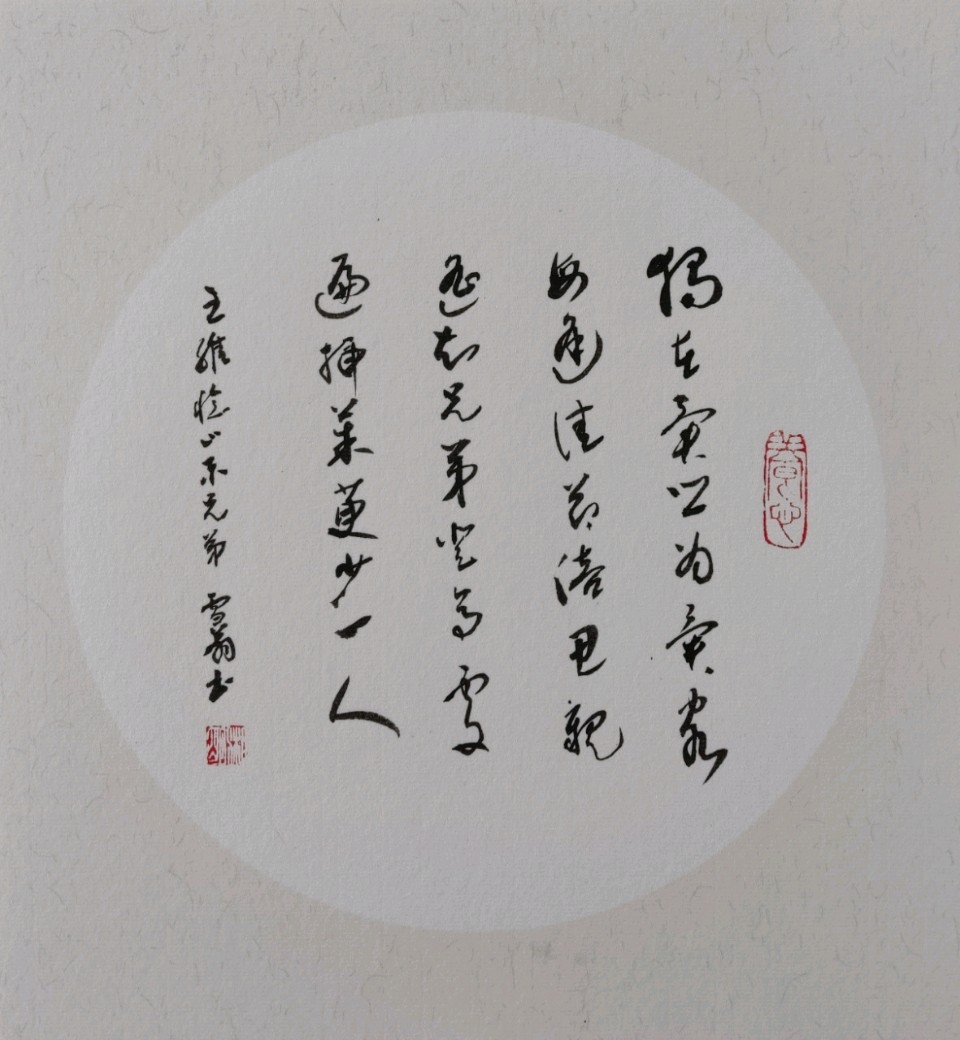 獨在異鄉為異客
每逢佳節倍思親
遙知兄弟登高處
遍插茱萸少一人
王維憶山东兄弟 雪翁书